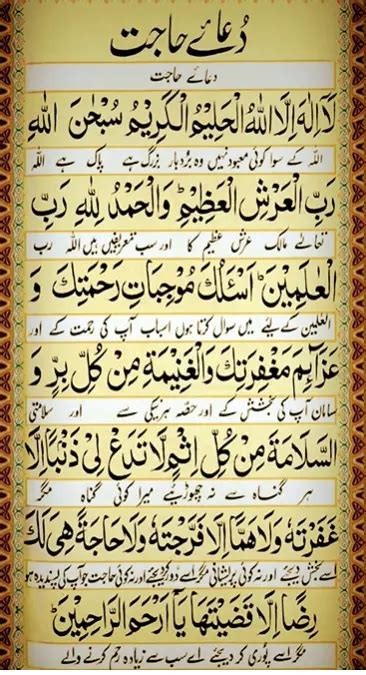 دُعائے حاجت
دعائے حاجت
لَآ اِلٰهَ اِلَّا اللهُ الْحَلِيْمُ الْكَرِيْمُ سُبْحٰنَ اللهِ
اللہ کے سوا کوئی معبود نہیں وہ بردبار بزرگ ہے پاک ہے اللہ
رَبِّ الْعَرْشِ الْعَظِيْمِ ؕ وَالْحَمْدُ لِلّٰهِ رَبِّ
تعالے مالک عرش عظیم کا اور سب تعریفیں ہیں اللہ رب
الْعٰلَمِيْنَ ؕ اَسْئَلُكَ مُوْجِبَاتِ رَحْمَتِكَ وَ
العلمین کے لیئے میں سوال کرتا ہوں اسباب آپ کی رحمت کے اور
عَزَآئِمَ مَغْفِرَتِكَ وَالْغَنِيْمَةَ مِنْ كُلِّ بِرٍّ وَ
سامان آپ کی بخشش کے اور حصّہ ہر نیکی سے اور سلامتی
السَّلَامَةَ مِنْ كُلِّ اِثْمٍ لَّا تَدَعْ لِیْ ذَنْۢبًا اِلَّا
ہر گناہ سے نہ چھوڑیئے میرا کوئی گناہ مگر
غَفَرْتَهٗ وَلَا هَمًّا اِلَّا فَرَّجْتَهٗ وَلَا حَاجَةً هِیَ لَكَ
اسے بخش دیجئے اور نہ کوئی پریشانی مگر اسے دور کیجئے اور نہ کوئی حاجت جو آپ کی پسندیدہ ہو
رِضًا اِلَّا قَضَيْتَهَا يَآ اَرْحَمَ الرَّاحِمِيْنَ ؕ
مگر اسے پوری کر دیجئے اے سب سے زیادہ رحم کرنے والے